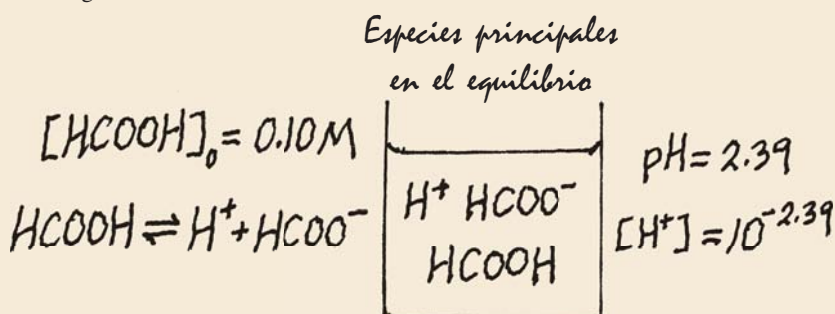 Especies principales
en el equilibrio
[HCOOH]₀ = 0.10M
HCOOH ⇌ H⁺ + HCOO⁻
H⁺ HCOO⁻
HCOOH
pH = 2.39
[H⁺] = 10⁻²·³⁹